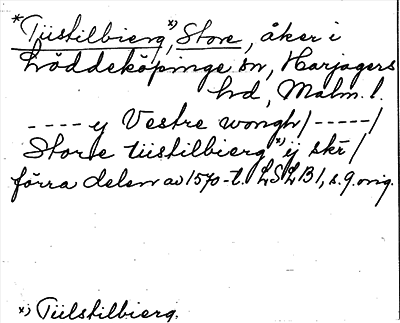 *Tüstilbierg*), Store, åker i
Löddeköpinge sn, Harjagers
hd, Malm. l.
---- y Vestre wongh/-----/
Store tüstilbierg*) ÿ skr/
förra delen av 1570-t. LSLB 1, s. 9. orig.
*) Tüilstilbierg.